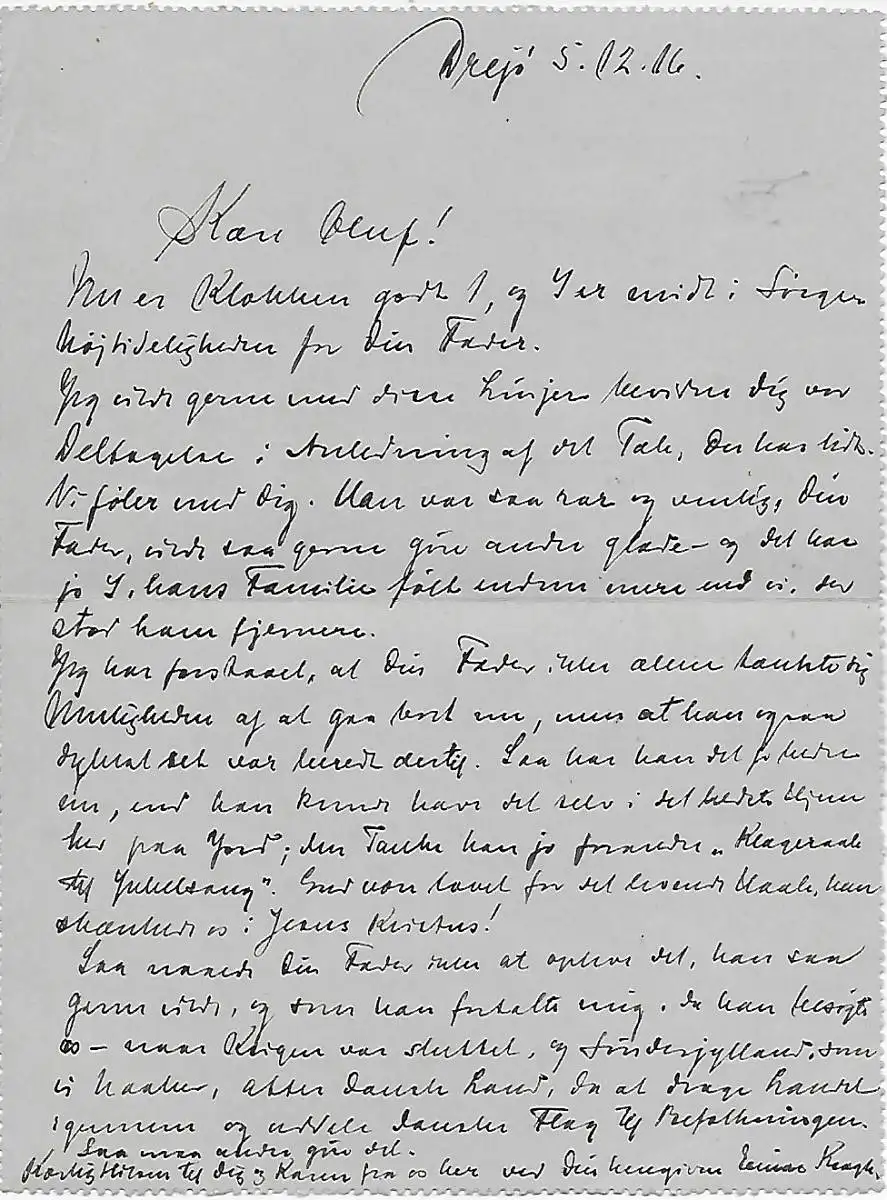 Drejö 5.12.16.
Kære Oluf!
Nu er Klokken godt 1, og I er midt i Sørge-
højtideligheden for Din Fader.
Jeg vilde gerne med disse Linjer bevidne Dig vor
Deltagelse i Anledning af det Tab, Du har lidt.
Vi föler med Dig. Han var saa rar og venlig, Din
Fader, vilde saa gerne göre andre glade – og det har
jo I, hans Familie følt endnu mere end vi, der
stod ham fjernere.
Jeg har forstaaet, at Din Fader ikke alene tænkte sig
Muligheden af at gaa bort nu, men at han ogsaa
dybest set var beredt dertil. Saa har han det jo bedre
nu, end han kunde have det selv i det bedste Hjem
her paa Jord; den Tanke kan jo forandre „Klageraab
til Jubelsang". Gud være lovet for det levende Haab, han
skænkede os i Jesus Kristus!
Saa naaede Din Fader ikke at opleve det, han saa
gerne vilde, og som han fortalte mig, da han besøgte
os – naar Krigen var sluttet, og Sönderjylland, som
vi haaber, atter dansk Land, da at drage Landet
igennem og uddele danske Flag til Befolkningen.
Saa maa andre göre det.
Kærlig Hilsen til Dig og Karen fra os her ved Din hengivne Einar Kragh.